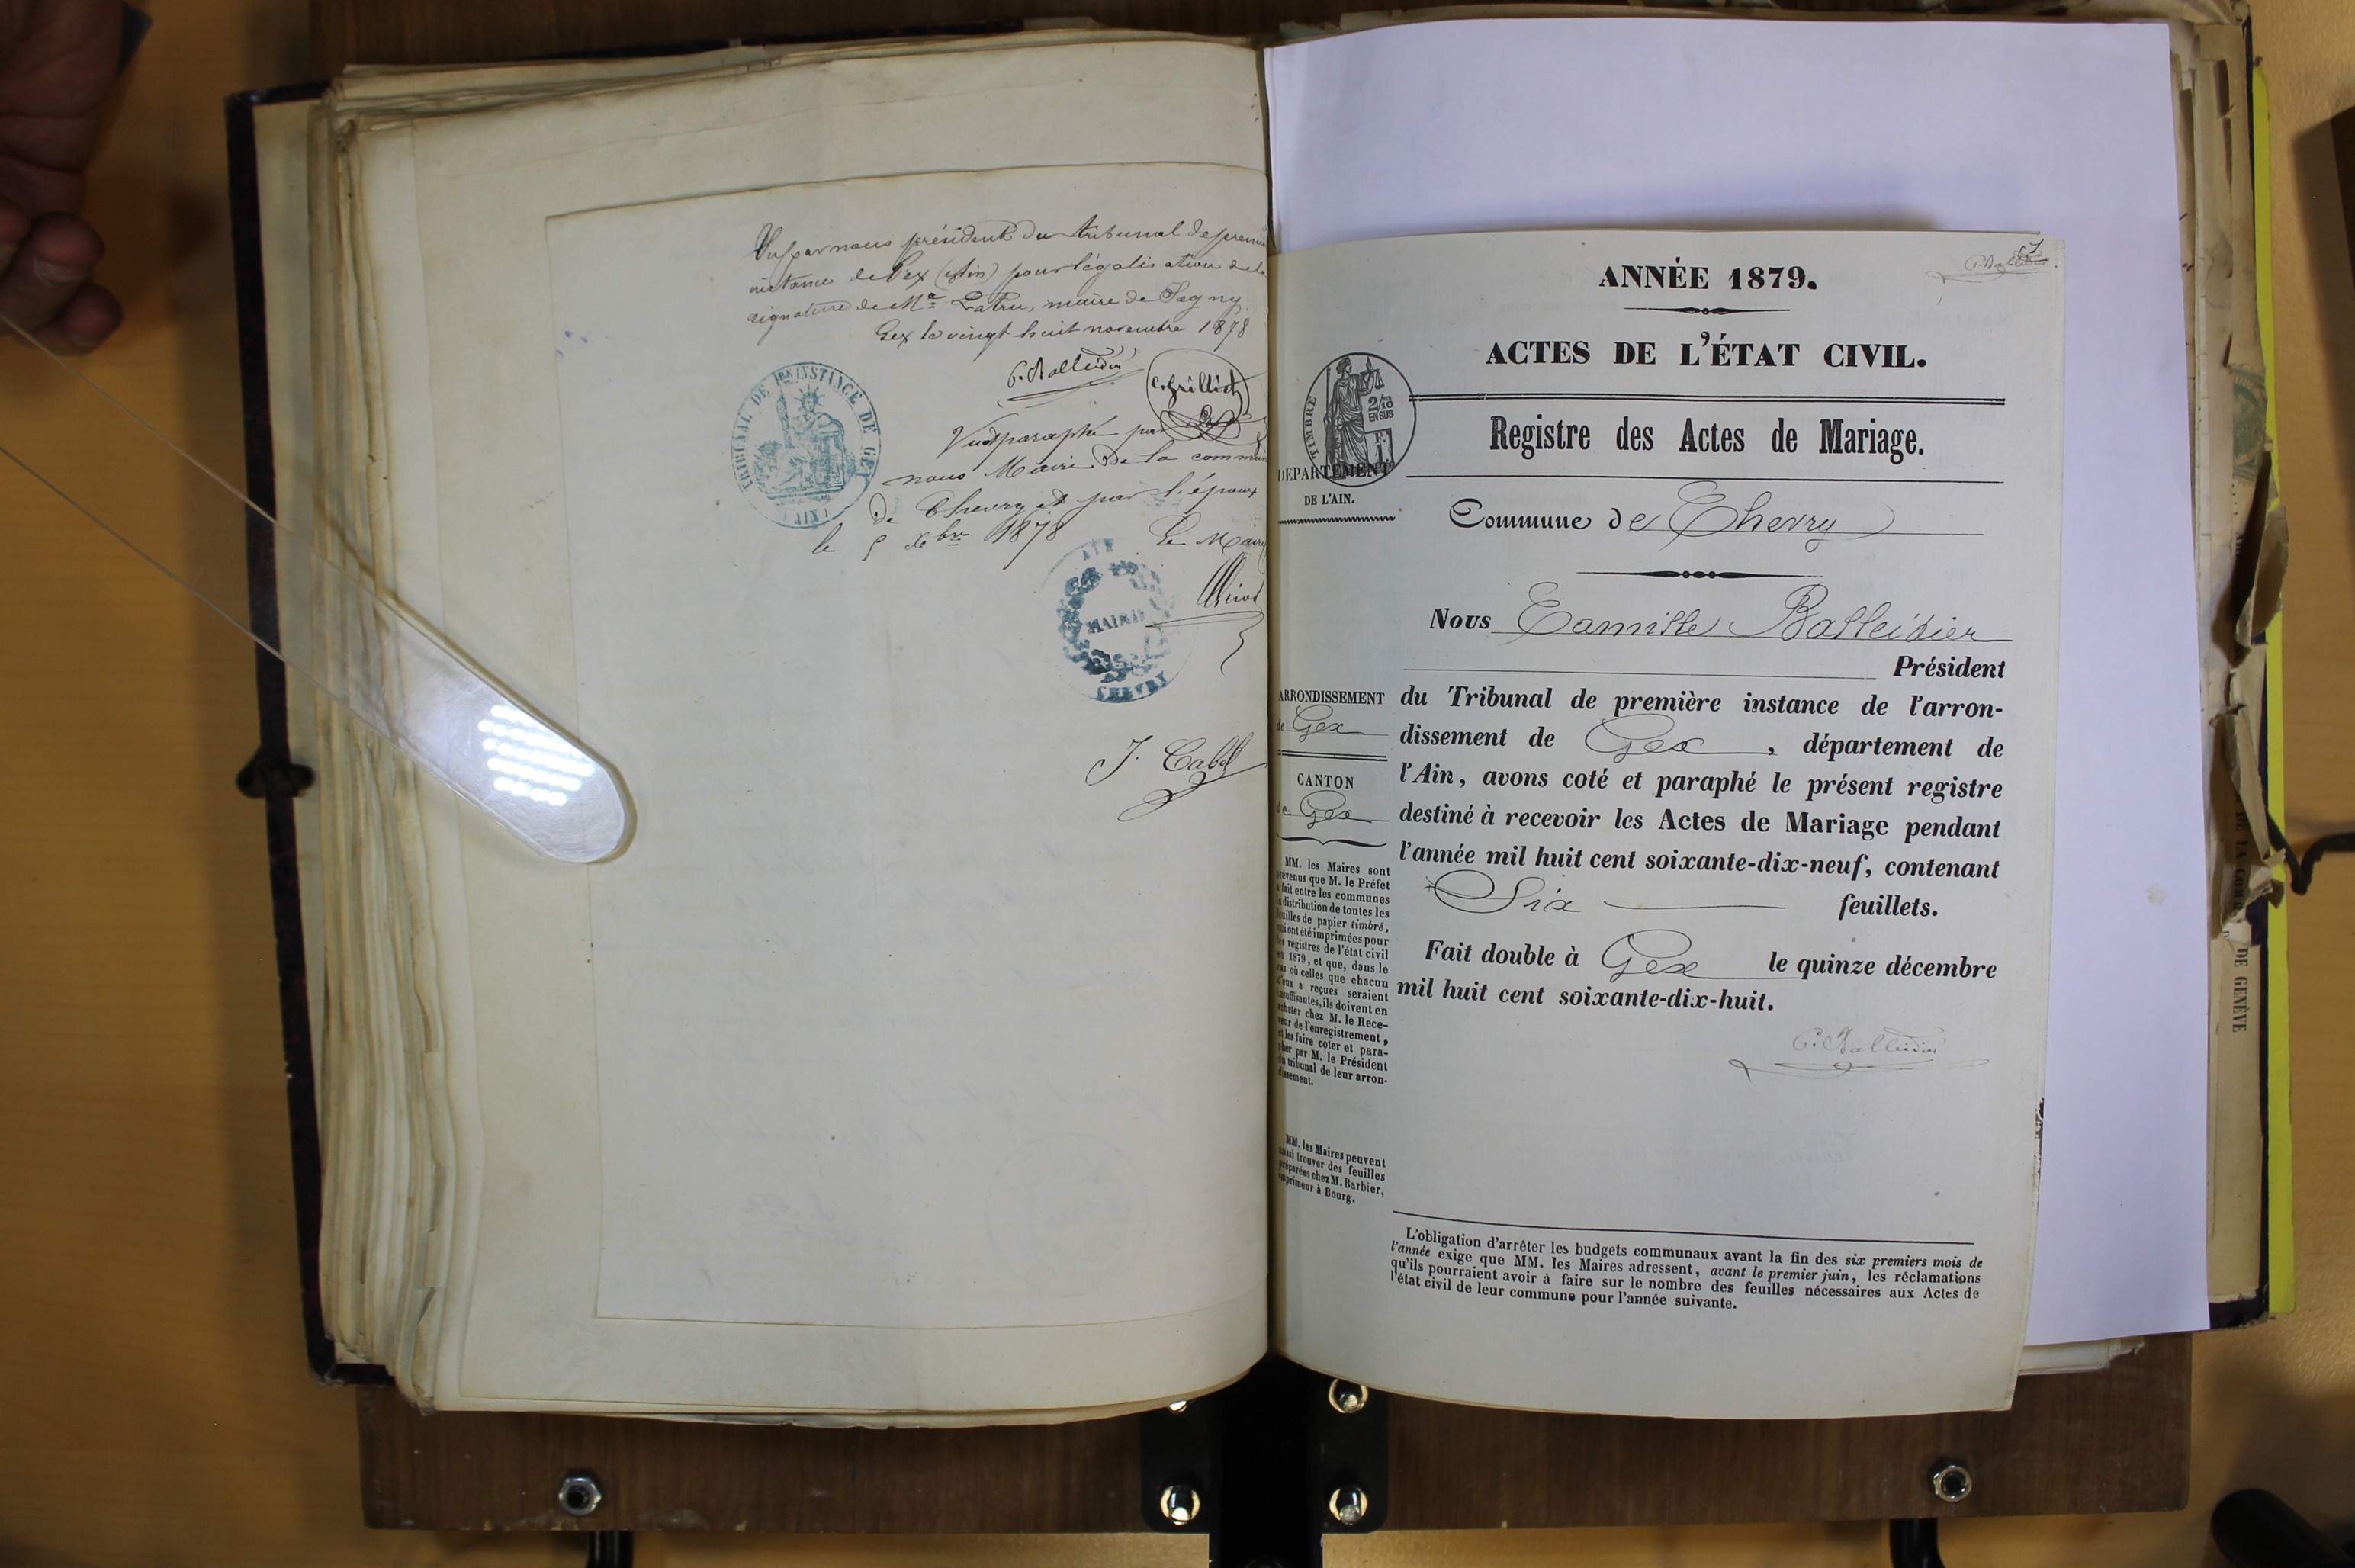 Vu par nous président du tribunal de premi
instance de Gex (Ain) pour légalisation de la
signature de Mr Latru, maire de Segny.
Gex le vingt huit novembre 1878
C. Balleidier
C. Grillet
TRIBUNAL DE 1RE INSTANCE DE GEX
(AIN)
Vu et paraphé par
nous Maire de la commune
de Chevry et par l'époux
le 5 Xbre 1878
Le Maire
AIN
MAIRIE
CHEVRY
J. Cabel
ANNÉE 1879.
ACTES DE L'ÉTAT CIVIL.
TIMBRE
2/10
EN SUS
Registre des Actes de Mariage.
DÉPARTEMENT
DE L'AIN.
Commune de Chevry
Nous Camille Balleidier
Président
ARRONDISSEMENT
de Gex
CANTON
de Gex
du Tribunal de première instance de l'arron-
dissement de Gex, département de
l'Ain, avons coté et paraphé le présent registre
destiné à recevoir les Actes de Mariage pendant
l'année mil huit cent soixante-dix-neuf, contenant
Six feuillets.
Fait double à Gex le quinze décembre
mil huit cent soixante-dix-huit.
C. Balleidier
MM. les Maires sont
prévenus que M. le Préfet
a fait entre les communes
la distribution de toutes les
feuilles de papier timbré,
qui ont été imprimées pour
les registres de l'état civil
en 1879, et que, dans le
cas où celles que chacun
d'eux a reçues seraient
insuffisantes, ils doivent en
acheter chez M. le Rece-
veur de l'enregistrement,
et les faire coter et para-
pher par M. le Président
du tribunal de leur arron-
dissement.
MM. les Maires peuvent
aussi trouver des feuilles
préparées chez M. Barbier,
imprimeur à Bourg.
L'obligation d'arrêter les budgets communaux avant la fin des six premiers mois de
l'année exige que MM. les Maires adressent, avant le premier juin, les réclamations
qu'ils pourraient avoir à faire sur le nombre des feuilles nécessaires aux Actes de
l'état civil de leur commune pour l'année suivante.
DE GENÈVE